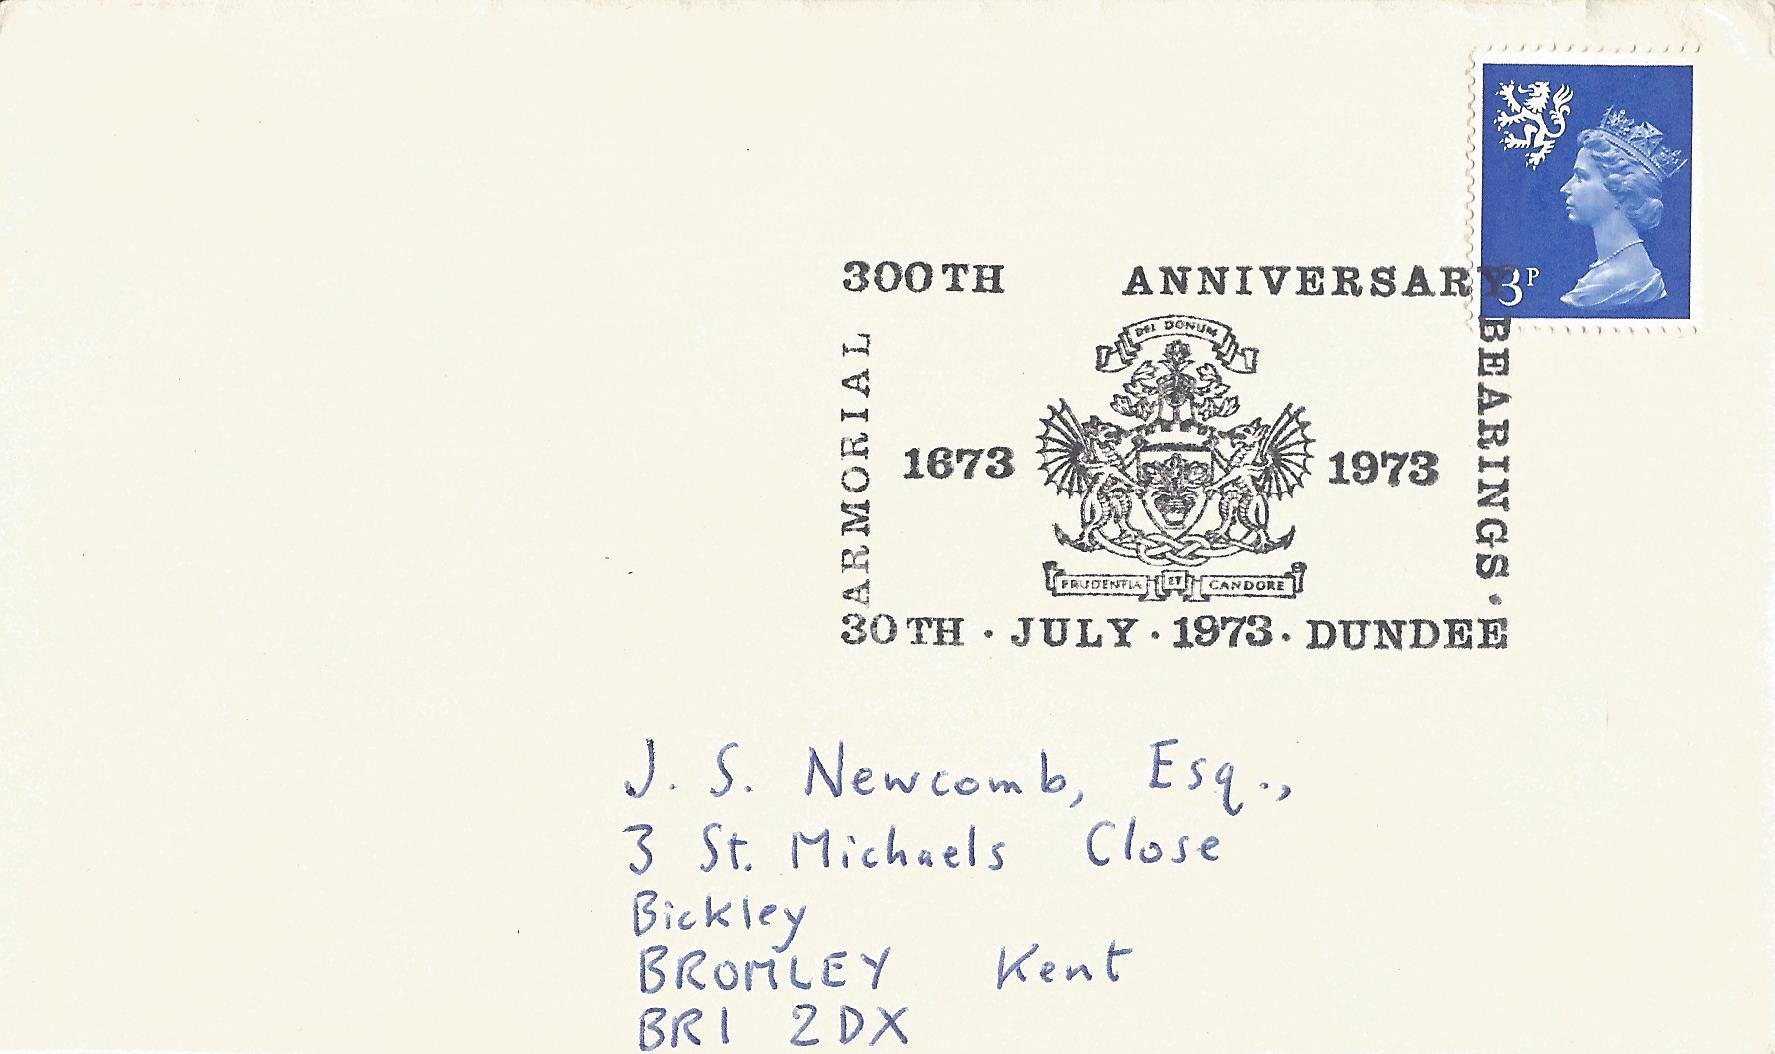 3P
300TH ANNIVERSARY
ARMORIAL
BEARINGS.
DEI DONUM
1673 1973
PRUDENTIA ET CANDORE
30TH · JULY · 1973 · DUNDEE
J. S. Newcomb, Esq.,
3 St. Michaels Close
Bickley
BROMLEY Kent
BR1 2DX